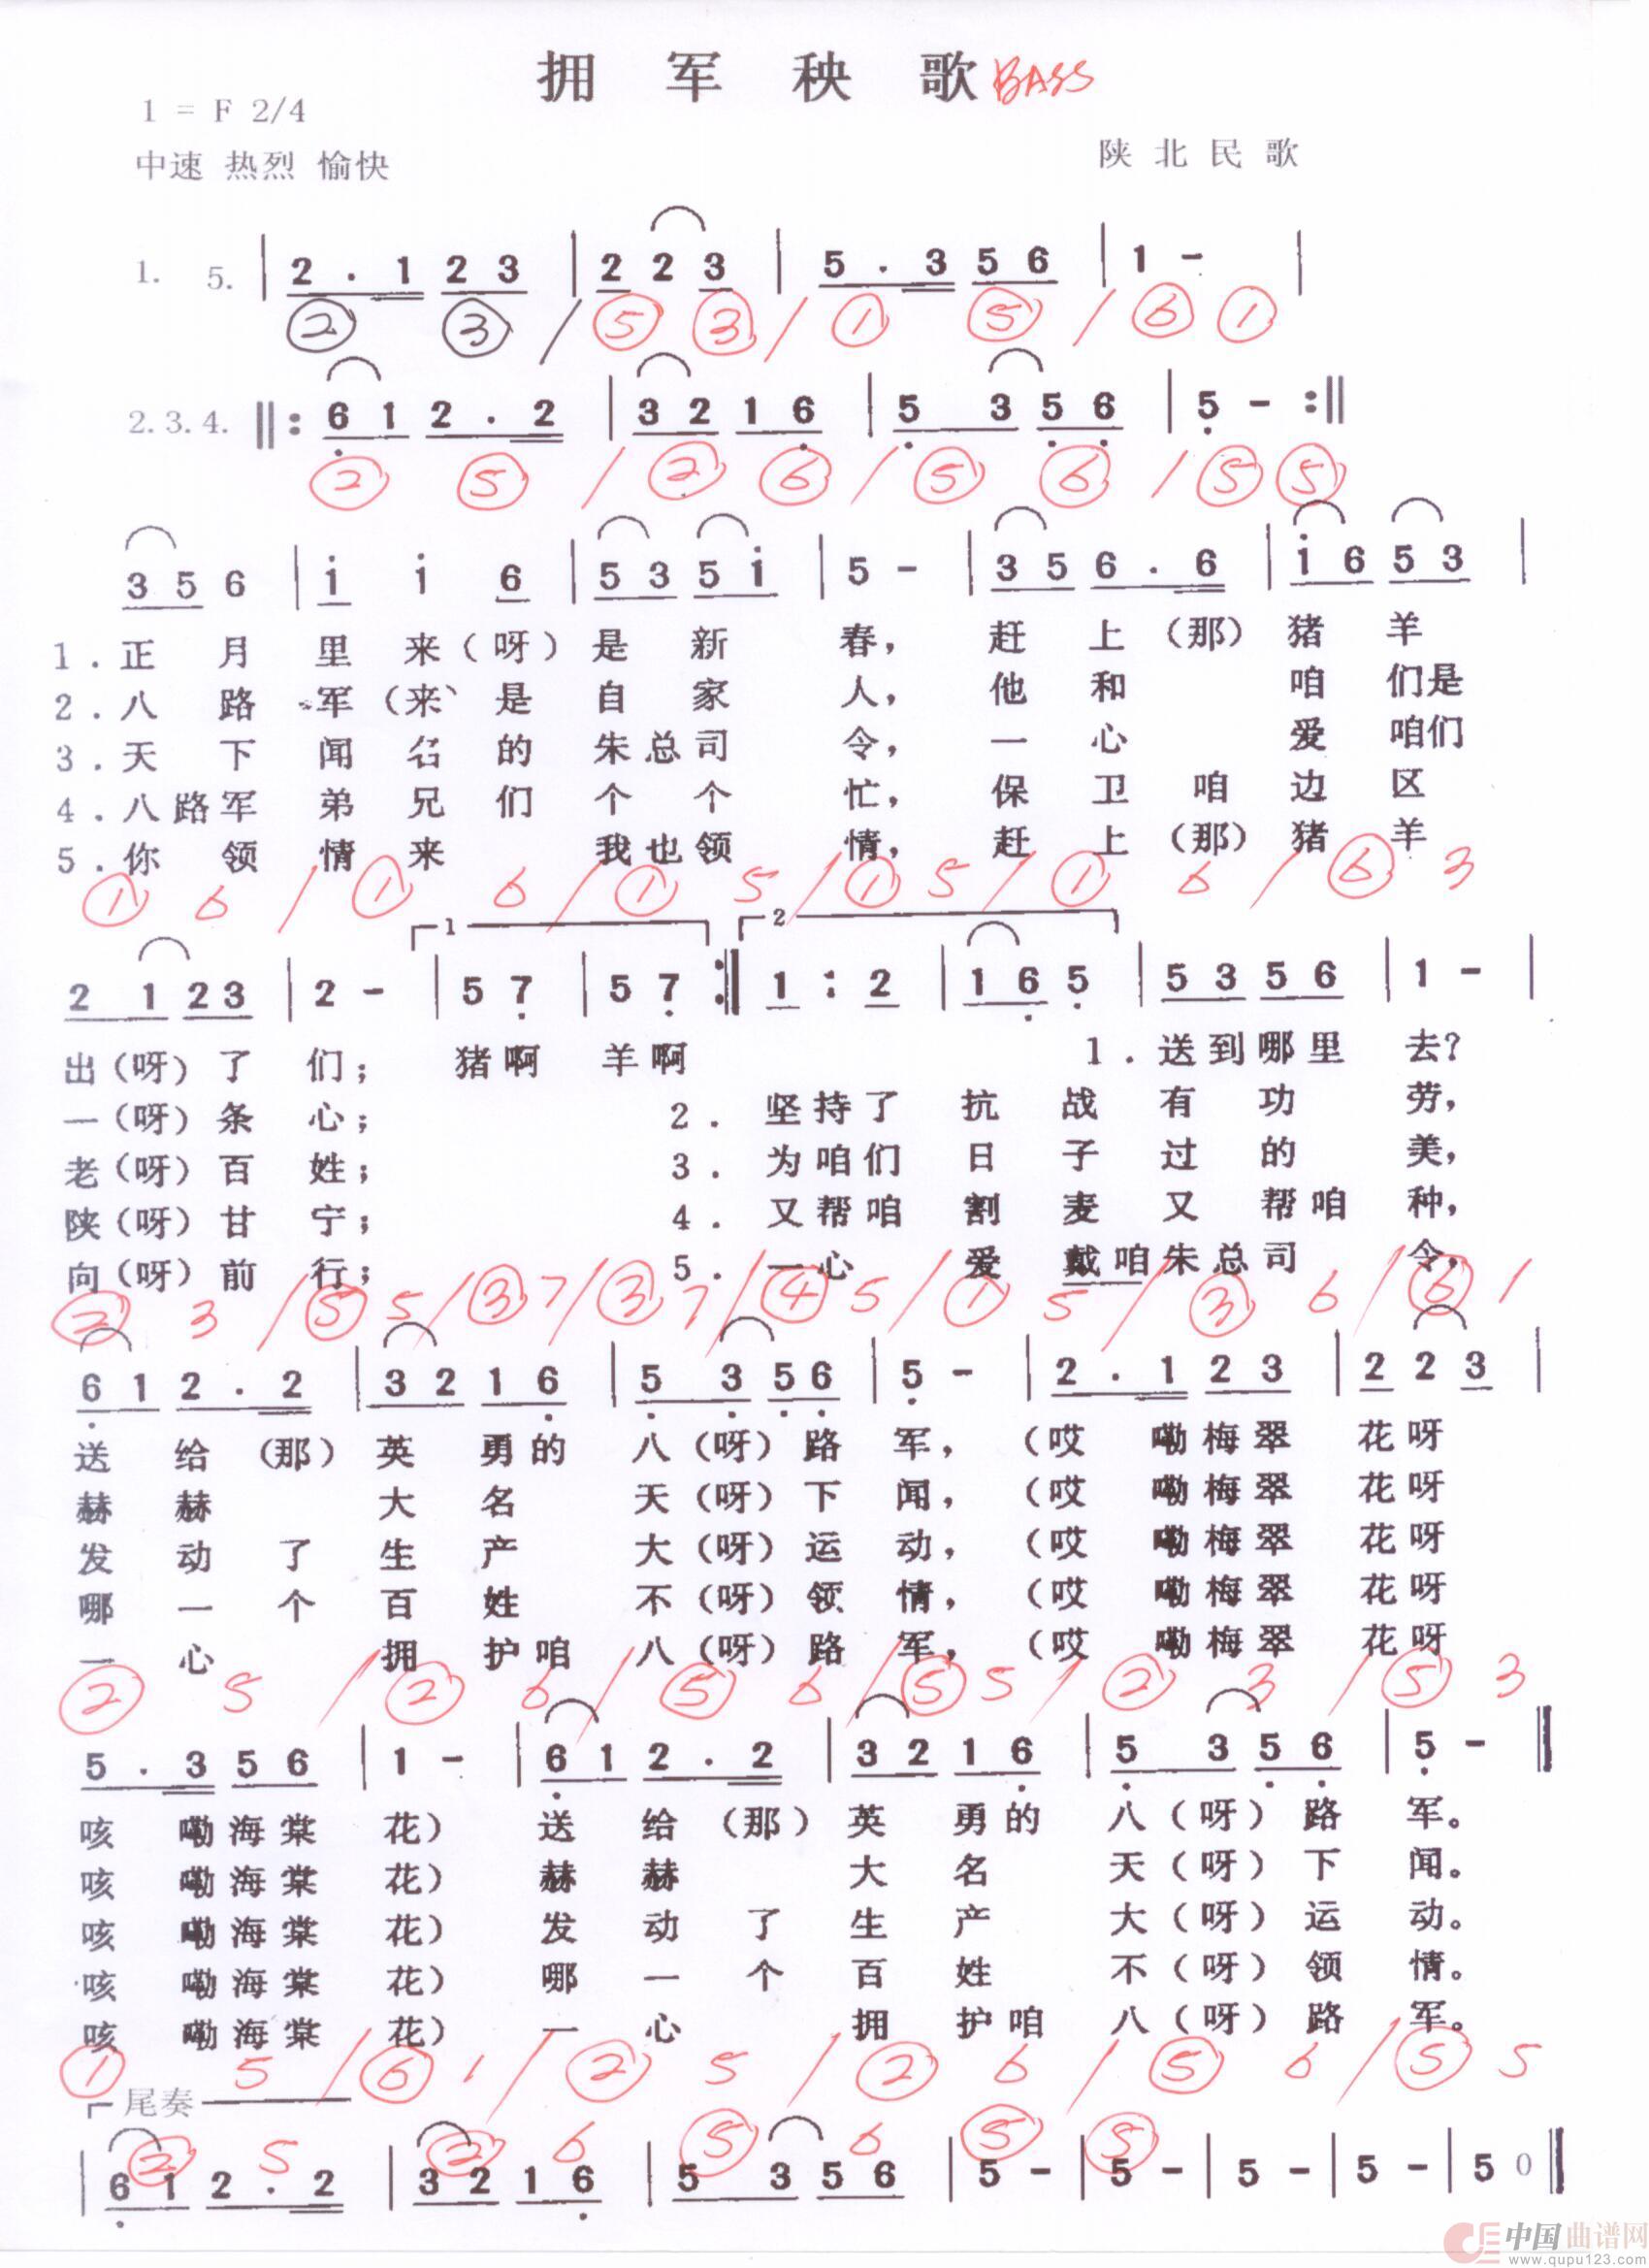 拥 军 秧 歌 BASS
1 = F 2/4
中速 热烈 愉快
陕 北 民 歌
1. 5. | 2 . 1 2 3 | 2 2 3 | 5 . 3 5 6 | 1 - |
② ③ / ⑤ ③ / ① ⑤ / ⑥ ①
2.3.4. ‖: 6 1 2 . 2 | 3 2 1 6 | 5 3 5 6 | 5 - :‖
② ⑤ / ② ⑥ / ⑤ ⑥ / ⑤ ⑤
3 5 6 | i i 6 | 5 3 5 i | 5 - | 3 5 6 . 6 | i 6 5 3 |
1.正 月 里 来(呀)是 新 春, 赶 上(那)猪 羊
2.八 路 军(来、是 自 家 人, 他 和 咱 们是
3.天 下 闻 名 的 朱总司 令, 一 心 爱 咱们
4.八路军 弟 兄 们 个 个 忙, 保 卫 咱 边 区
5.你 领 情 来 我也领 情, 赶 上(那)猪 羊
① 6 / ① 6 / ① 5 / ① 5 / ① 6 / ⑥ 3
1 2
2 1 2 3 | 2 - | 5 7 | 5 7 :‖ 1 : 2 | 1 6 5 | 5 3 5 6 | 1 - |
出(呀)了 们; 猪啊 羊啊 1.送到哪里 去?
一(呀)条 心; 2. 坚持了 抗 战 有 功 劳,
老(呀)百 姓; 3. 为咱们 日 子 过 的 美,
陕(呀)甘 宁; 4. 又帮咱 割 麦 又 帮咱 种,
向(呀)前 行; 5. 一心 爱 戴咱朱总司 令,
② 3 / ⑤ 5 / ③ 7 / ③ 7 / ④ 5 / ① 5 / ③ 6 / ⑥ 1
6 1 2 . 2 | 3 2 1 6 | 5 3 5 6 | 5 - | 2 . 1 2 3 | 2 2 3 |
送 给 (那) 英 勇的 八(呀)路 军, (哎 嘞梅翠 花呀
赫 赫 大 名 天(呀)下 闻, (哎 嘞梅翠 花呀
发 动 了 生 产 大(呀)运 动, (哎 嘞梅翠 花呀
哪 一 个 百 姓 不(呀)领 情, (哎 嘞梅翠 花呀
一 心 拥 护咱 八(呀)路 军, (哎 嘞梅翠 花呀
② 5 / ② 6 / ⑤ 6 / ⑤ 5 / ② 3 / ⑤ 3
5 . 3 5 6 | 1 - | 6 1 2 . 2 | 3 2 1 6 | 5 3 5 6 | 5 - ‖
咳 嘞海棠 花) 送 给 (那) 英 勇的 八(呀)路 军。
咳 嘞海棠 花) 赫 赫 大 名 天(呀)下 闻。
咳 嘞海棠 花) 发 动 了 生 产 大(呀)运 动。
咳 嘞海棠 花) 哪 一 个 百 姓 不(呀)领 情。
咳 嘞海棠 花) 一 心 拥 护咱 八(呀)路 军。
① 5 / ⑥ 1 / ② 5 / ② 6 / ⑤ 6 / ⑤ 5
尾奏
② 5 ② 6 ⑤ 6 ⑤ ⑤
| 6 1 2 . 2 | 3 2 1 6 | 5 3 5 6 | 5 - | 5 - | 5 - | 5 - | 5 0 ‖
中国曲谱网
www.qupu123.com